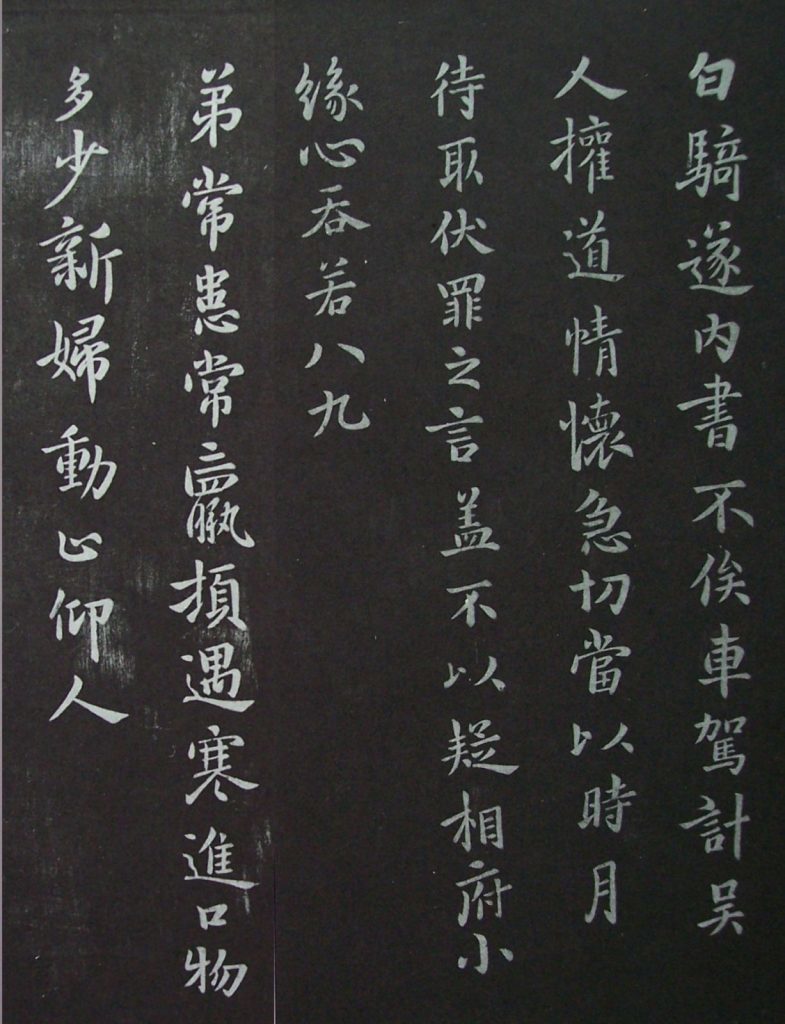 白騎遂內書不俟車駕計吴
人擁道情懷急切當以時月
待取伏罪之言盖不以疑相府小
緣心吞若八九
弟常患常羸頓遇寒進口物
多少新婦動止仰人